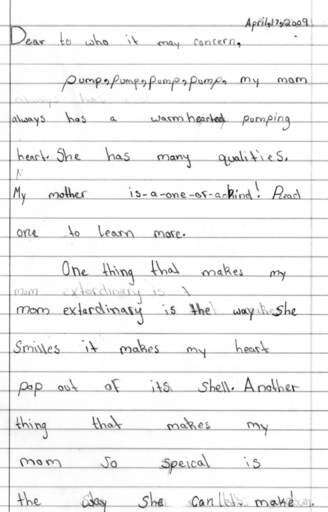 April,17,2009
Dear to who it may concern,
pump,pump,pump,pump, my mom
always has a warmhearted pumping
heart. She has many qualities.
My mother is-a-one-of-a-kind! Read
one to learn more.
One thing that makes my
mom extardinary is the way She
Smilles it makes my heart
pop out of its shell. Another
thing that makes my
mom so speical is
the way she can make